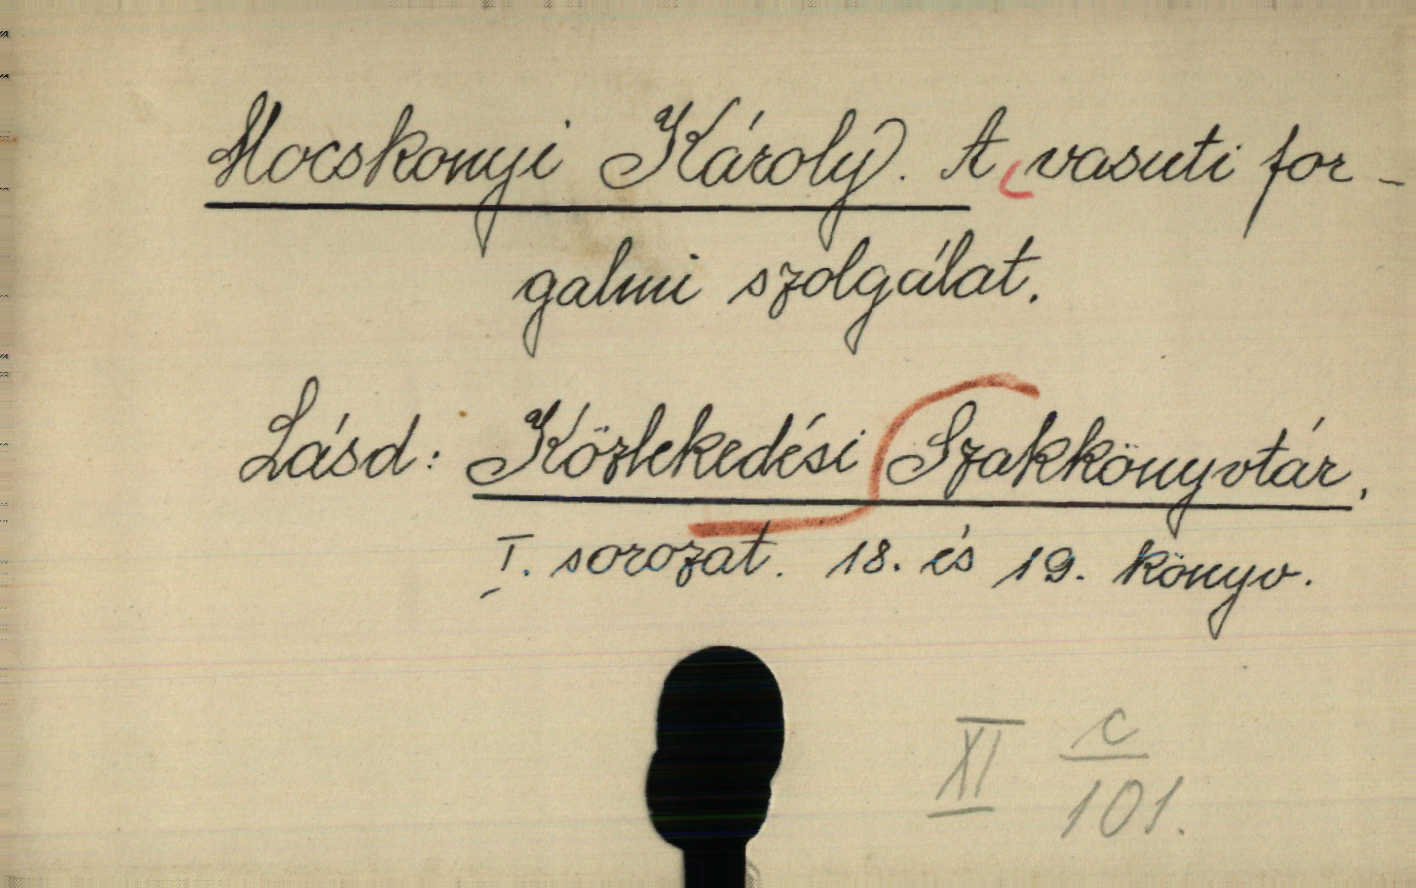 Mocskonyi Károly. A vasuti for-
galmi szolgálat.
Lásd: Közlekedési Szakkönyvtár,
I. sorozat. 18. és 19. könyv.
XI c/101.